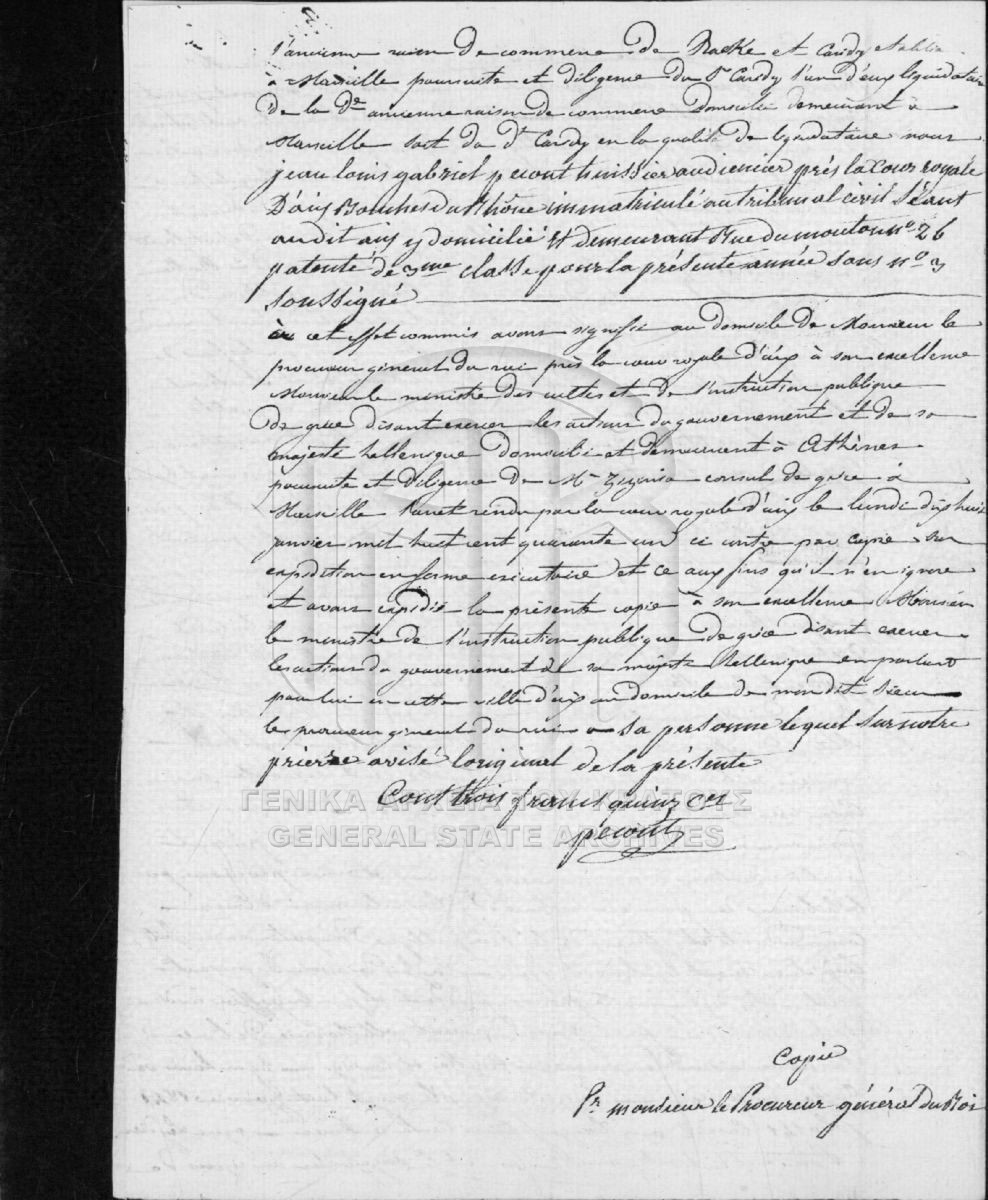 l'ancienne raison de commerce de Racke et Cardy etablie
à Marseille poursuite et diligence du Sr Cardy l'un d'eux liquidataire
De la dte ancienne raison de commerce domicilié demeurant à
Marseille soit du dt Cardy en la qualité de liquidataire nous
jean louis gabriel pecout huissier audiencier près la Cour royale
D'aix Bouches du Rhône immatriculé au tribunal civil Séant
audit aix y domicilié et demeurant Rue du mouton no 26
patenté de 3me classe pour la présente année sous no 3
soussigné
à cet effet commis avons signifié au domicile de Monsieur le
procureur general du roi près la cour royale d'aix à son excellence
Monsieur le ministre des cultes et de l'instruction publique
de grèce disant exercer les actions du gouvernement et de sa
majesté hellenique domicilié et demeurant à Athènes
poursuite et diligence de Mr Zizinia consul de grèce à
Marseille l'arret rendu par la cour royale d'aix le lundi dix huit
janvier mil huit cent quarante un ci contre par copie son
expedition en forme executoire et ce aux fins qu'il n'en ignore
et avons expedié la présente copie à son excellence Monsieur
le ministre de l'instruction publique de grèce disant exercer
les actions du gouvernement de sa majesté hellenique en parlant
pour lui en cette ville d'aix au domicile de mondit Sieur
le procureur general du roi a sa personne lequel sur notre
prierre a visé l'original de la présente
Cout trois francs quinz cen
pecout
ΓΕΝΙΚΑ ΑΡΧΕΙΑ ΤΟΥ ΚΡΑΤΟΥΣ
GENERAL STATE ARCHIVES
Copie
Pr monsieur le Procureur général du Roi